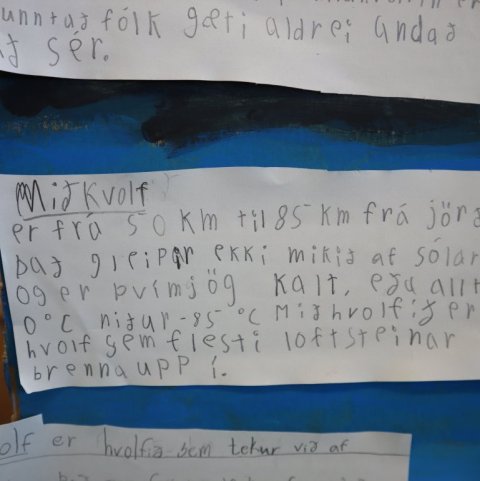 unntað fólk gæti aldrei andað
að sér.
Miðkvolf
er frá 50 km til 85 km frá jörð
það gleipir ekki mikið af sólar
og er þvímjög kalt, eða allt
0°C niður -85 °C Miðhvolfið er
hvolf sem flesti loftsteinar
brennaupp í.
olf er hvolfið sem tekur við af